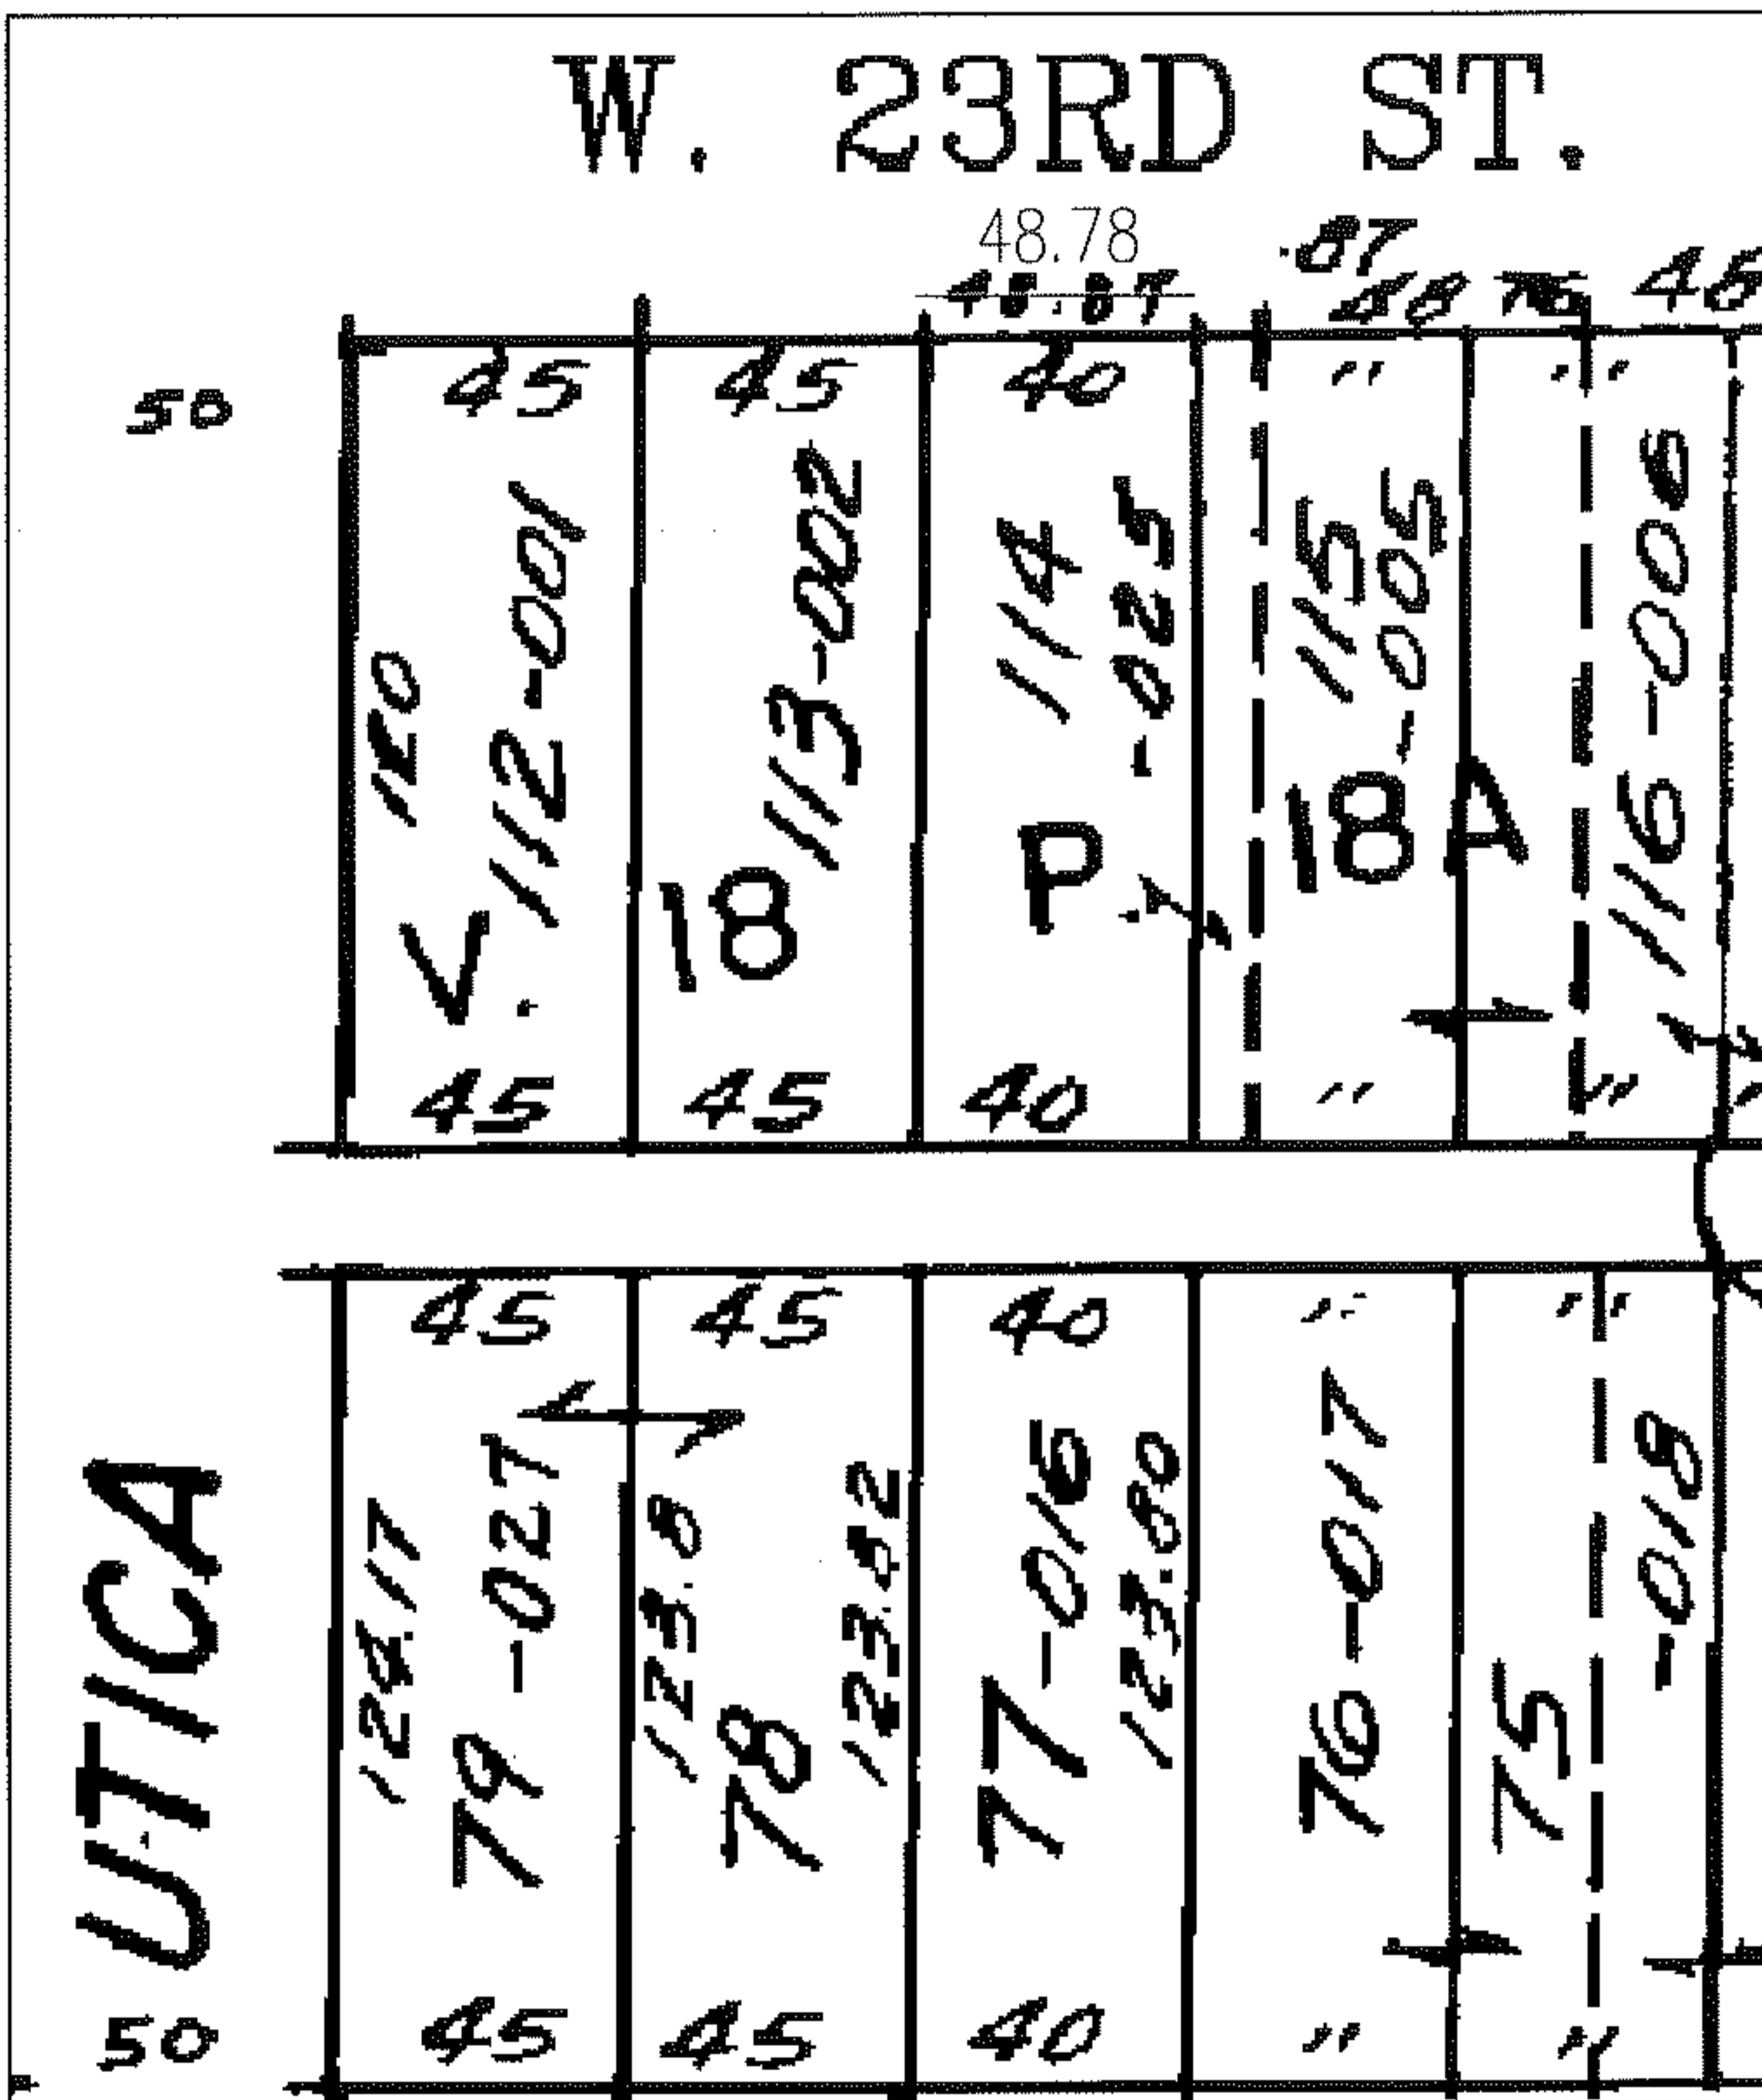 W. 23RD ST.
48.78
48.87
.87
48.76
48
50
45
45
40
"
"
120
112-001
113-002
114
-025
115
-005
116-006
V.
18
P.
18A
45
45
40
"
"
45
45
40
"
"
UTICA
124.17
79-027
123.98
78
123.92
77-016
123.80
76-017
75
-018
50
45
45
40
"
"